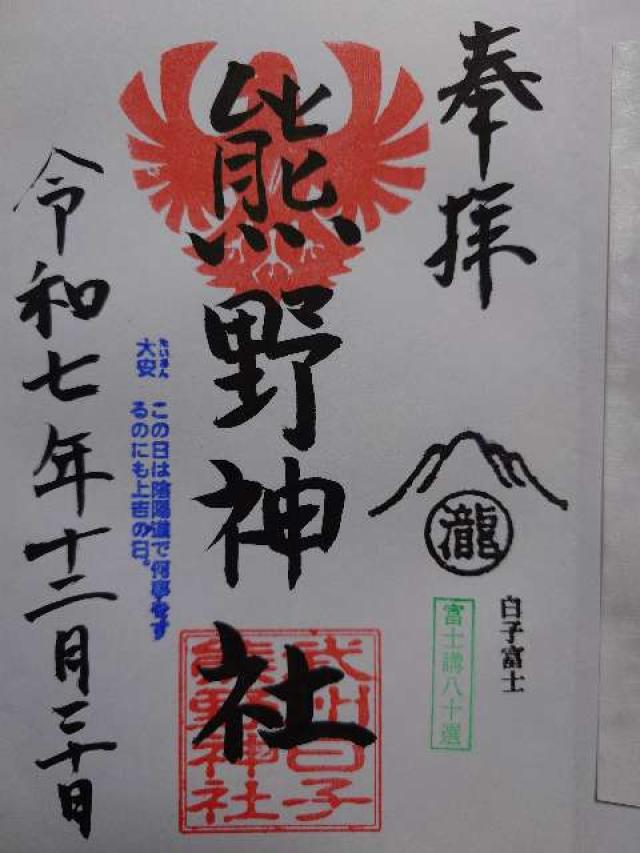 奉拝
瀧
白子富士
富士講八十選
熊野神社
武州白子
熊野神社
たいあん
大安 この日は陰陽道で何事をす
るのにも上吉の日。
令和七年十二月二十日